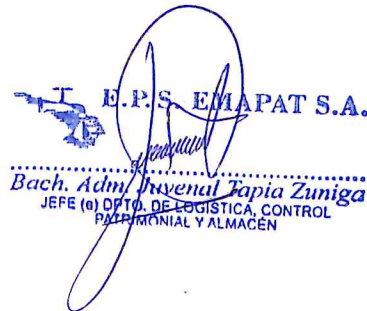 E.P.S. EMAPAT S.A.
Bach. Adm. Juvenal Tapia Zuniga
JEFE (e) DPTO. DE LOGÍSTICA, CONTROL
PATRIMONIAL Y ALMACÉN